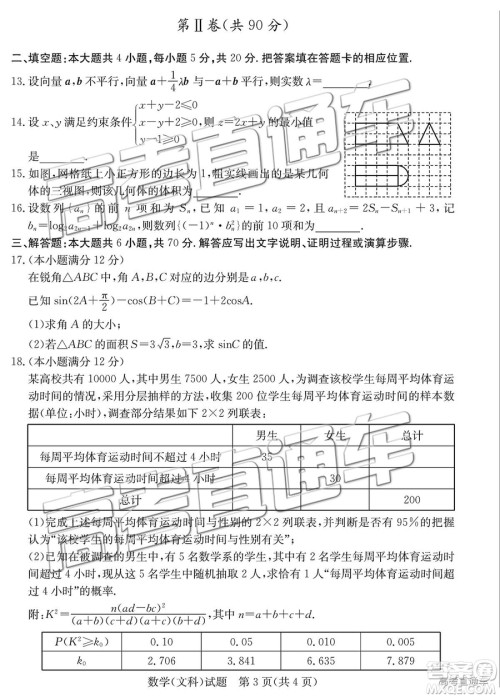 第Ⅱ卷(共 90 分)
二、填空题:本大题共 4 小题,每小题 5 分,共 20 分.把答案填在答题卡的相应位置.
13.设向量 a,b 不平行,向量 a+1/4λb 与-a+b 平行,则实数 λ=______.
14.设 x、y 满足约束条件{x+y-2≤0
则 z=2x+y 的最小值
y-1≥0
是______.
15.如图,网格纸上小正方形的边长为 1,粗实线画出的是某几何
体的三视图,则该几何体的体积为______.
16.设数列{aₙ}的前 n 项和为 Sₙ,已知 a₁=1,a₂=2,且 aₙ₊₂=2Sₙ-Sₙ₊₁+3,记
则数列{(-1)ⁿ·bₙ²}的前 10 项和为______.
三、解答题:本大题共 6 小题,共 70 分.解答应写出文字说明、证明过程或演算步骤.
17.(本小题满分 12 分)
在锐角△ABC 中,角 A,B,C 对应的边分别是 a,b,c.
已知 sin(2A+π/2)-cos(B+C)=-1+2cosA.
(1)求角 A 的大小;
(2)若△ABC 的面积 S=3√3,b=3,求 sinC 的值.
18.(本小题满分 12 分)
某高校共有 10000 人,其中男生 7500 人,女生 2500 人,为调查该校学生每周平均体育运
动时间的情况,采用分层抽样的方法,收集 200 位学生每周平均体育运动时间的样本数
据(单位:小时),调查部分结果如下 2×2 列联表:
男生 女生 总计
每周平均体育运动时间不超过 4 小时 35
每周平均体育运动时间超过 4 小时 30
总计 200
(1)完成上述每周平均体育运动时间与性别的 2×2 列联表,并判断是否有 95%的把握
认为“该校学生的每周平均体育运动时间与性别有关”;
(2)已知在被调查的男生中,有 5 名数学系的学生,其中有 2 名学生每周平均体育运动时间
超过 4 小时,现从这 5 名学生中随机抽取 2 人,求恰有 1 人“每周平均体育运动时间超过
4 小时”的概率.
附:K²=n(ad-bc)²/(a+b)(c+d)(a+c)(b+d),其中 n=a+b+c+d.
P(K²≥k₀) 0.10 0.05 0.010 0.005
k₀ 2.706 3.841 6.635 7.879
数学(文科)试题 第 3 页(共 4 页)
高考直通车
高考直通车
高考直通车